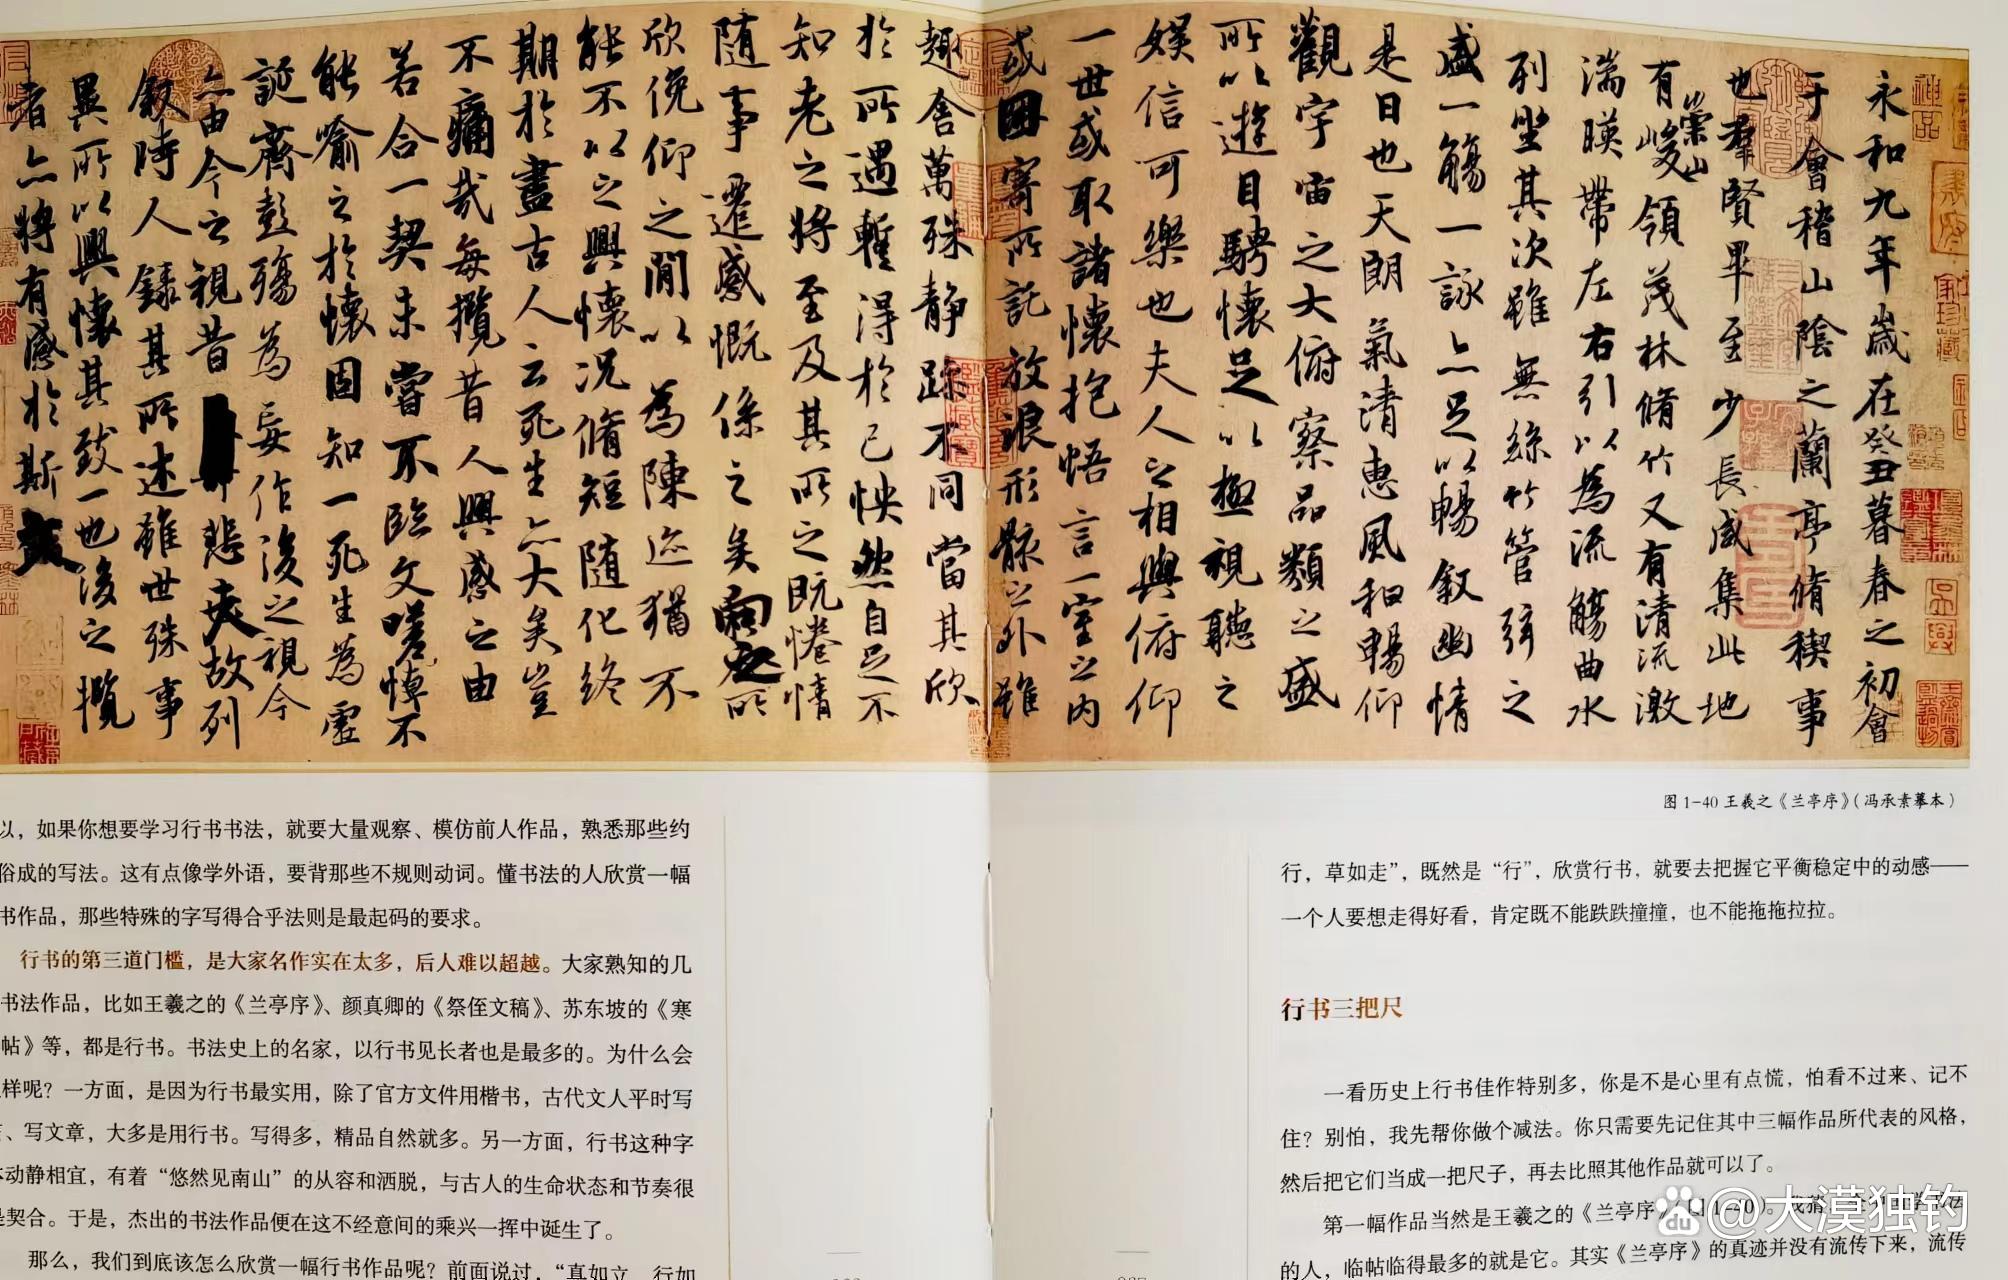 永和九年歲在癸丑暮春之初會
于會稽山陰之蘭亭脩稧事
也羣賢畢至少長咸集此地
有崇山峻領茂林脩竹又有清流激
湍暎帶左右引以為流觴曲水
列坐其次雖無絲竹管弦之
盛一觴一詠亦足以暢叙幽情
是日也天朗氣清惠風和暢仰
觀宇宙之大俯察品類之盛
所以遊目騁懷足以極視聽之
娱信可樂也夫人之相與俯仰
一世或取諸懷抱悟言一室之内
或因寄所託放浪形骸之外雖
趣舍萬殊静躁不同當其欣
於所遇暫得於己怏然自足不
知老之將至及其所之既惓情
随事遷感慨係之矣向之所
欣俛仰之閒以為陳迹猶不
能不以之興懷况脩短随化終
期於盡古人云死生亦大矣豈
不痛哉每攬昔人興感之由
若合一契未嘗不臨文嗟悼不
能喻之於懷固知一死生為虚
誕齊彭殤為妄作後之視今
亦由今之視昔悲夫故列
叙時人錄其所述雖世殊事
異所以興懷其致一也後之攬
者亦將有感於斯文
图1-40 王羲之《兰亭序》（冯承素摹本）
以，如果你想要学习行书书法，就要大量观察、模仿前人作品，熟悉那些约
俗成的写法。这有点像学外语，要背那些不规则动词。懂书法的人欣赏一幅
书作品，那些特殊的字写得合乎法则是最起码的要求。
行书的第三道门槛，是大家名作实在太多，后人难以超越。大家熟知的几
书法作品，比如王羲之的《兰亭序》、颜真卿的《祭侄文稿》、苏东坡的《寒
帖》等，都是行书。书法史上的名家，以行书见长者也是最多的。为什么会
样呢？一方面，是因为行书最实用，除了官方文件用楷书，古代文人平时写
、写文章，大多是用行书。写得多，精品自然就多。另一方面，行书这种字
动静相宜，有着“悠然见南山”的从容和洒脱，与古人的生命状态和节奏很
是契合。于是，杰出的书法作品便在这不经意间的乘兴一挥中诞生了。
那么，我们到底该怎么欣赏一幅行书作品呢？前面说过，“真如立，行如
行，草如走”，既然是“行”，欣赏行书，就要去把握它平衡稳定中的动感——
一个人要想走得好看，肯定既不能跌跌撞撞，也不能拖拖拉拉。
行书三把尺
一看历史上行书佳作特别多，你是不是心里有点慌，怕看不过来、记不
住？别怕，我先帮你做个减法。你只需要先记住其中三幅作品所代表的风格，
然后把它们当成一把尺子，再去比照其他作品就可以了。
第一幅作品当然是王羲之的《兰亭序》
的人，临帖临得最多的就是它。其实《兰亭序》的真迹并没有流传下来，流传
Bai du @大漠独钓